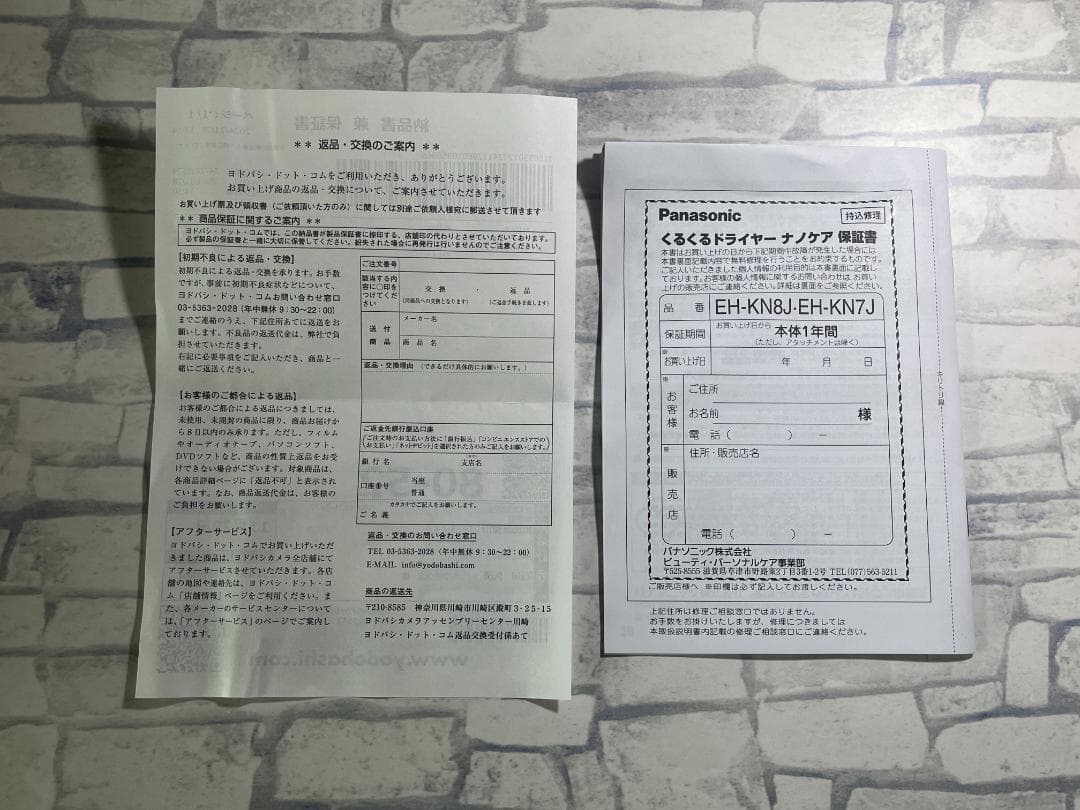 納品書 兼 保証書
** 返品・交換のご案内 **
ヨドバシ・ドット・コムをご利用いただき、ありがとうございます。
お買い上げ商品の返品・交換について、ご案内させていただきます。
お買い上げ票及び領収書(ご依頼頂いた方のみ)に関しては別途ご依頼人様宛に郵送させて頂きます
** 商品保証に関するご案内 **
ヨドバシ・ドット・コムでは、この納品書が製品保証書に捺印する、店舗印の代わりとさせていただいております。
必ず製品の保証書と一緒に大切に保管してください。紛失された場合に再発行は行いませんのでご注意ください。
【初期不良による返品・交換】
初期不良による返品・交換を承ります。お手数
ですが、事前に初期不良症状などについて、
ヨドバシ・ドット・コムお問い合わせ窓口
03-5363-2028(年中無休 9:30~22:00)
までご連絡のうえ、下記住所あてに返送をお
願いします。不良品の返送代金は、弊社で負
担させていただきます。
右記に必要事項をご記入いただき、商品と一
緒にご返送ください。
【お客様のご都合による返品】
お客様のご都合による返品につきましては、
未使用、未開封の商品に限り、商品お届けか
ら8日以内のみ承ります。ただし、フィルム
やオーディオテープ、パソコンソフト、
DVDソフトなど、商品の性質上返品をお受
けできない場合がございます。対象商品は、
各商品詳細ページに「返品不可」と表示され
ています。なお、商品返送代金は、お客様の
ご負担をお願いします。
【アフターサービス】
ヨドバシ・ドット・コムでお買い上げいただ
きました商品は、ヨドバシカメラ全店舗にて
アフターサービスさせていただきます。各店
舗の地図や連絡先は、ヨドバシ・ドット・コ
ム「店舗情報」ページをご利用ください。ま
た、各メーカーのサービスセンターについて
は、「アフターサービス」のページでご案内し
ております。
ご注文番号
該当する内
容に○印を
つけてくだ
さい
交換 ・ 返品
(同商品への交換となります) (ご返金手続きを致します)
送付
商品
メーカー名
商品名
返品・交換理由 (できるだけ具体的にお願いします。)
ご返金先銀行振込口座
(ご注文時のお支払い方法に「銀行振込」「コンビニエンスストアでの
お支払い」「ネットデビット」を選択された方のみご記入をお願いします。)
銀行名 支店名
口座番号
当座
普通
カタカナでご記入をお願いします。
ご名義
返品・交換のお問い合わせ窓口
TEL 03-5363-2028(年中無休 9:30~22:00)
E-MAIL info@yodobashi.com
商品の返送先
〒210-8585 神奈川県川崎市川崎区殿町3-25-15
ヨドバシカメラアッセンブリーセンター川崎
ヨドバシ・ドット・コム返品交換受付係あて
www.yodobashi.com
Panasonic
持込修理
くるくるドライヤー ナノケア 保証書
本書はお買い上げの日から下記期間中故障が発生した場合には
本書裏面記載内容で無料修理を行うことをお約束するものです。
ご記入いただきました個人情報の利用目的は本書裏面に記載し
ております。お客様の個人情報に関するお問い合わせは、お買い
上げの販売店にご連絡ください。詳細は裏面をご参照ください。
品番 EH-KN8J・EH-KN7J
保証期間
お買い上げ日から
本体1年間
(ただし、アタッチメントは除く)
※
お買い上げ日 年 月 日
※
お客様
ご住所
お名前 様
電話( ) ー
※
販売店
住所・販売店名
電話( ) ー
パナソニック株式会社
ビューティ・パーソナルケア事業部
〒525-8555 滋賀県草津市野路東2丁目3番1-2号 TEL(077)563-5211
ご販売店様へ ※印欄は必ず記入してお渡しください。
上記住所は修理ご相談窓口ではありません。
お手数をお掛けいたしますが、修理につきましては
本取扱説明書内記載の修理ご相談窓口にご連絡ください。
キリトリ線